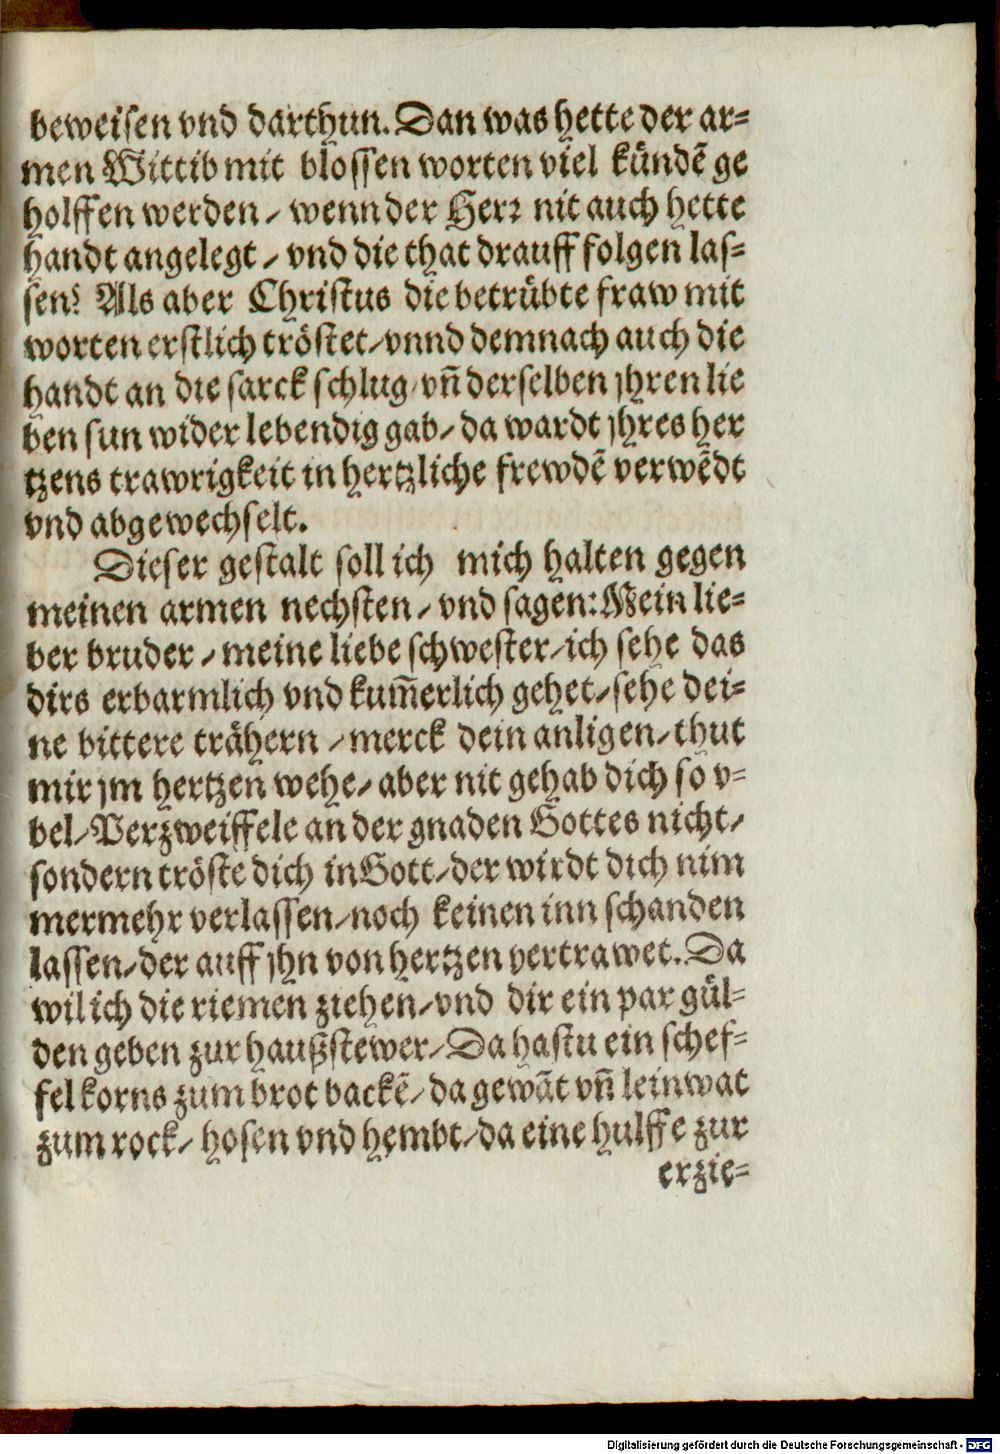 beweisen vnd darthun. Dan was hette der ar-
men Wittib mit blossen worten viel kündẽ ge
holffen werden / wenn der Herꝛ nit auch hette
handt angelegt / vnd die that drauff folgen las-
sen? Als aber Christus die betrübte fraw mit
worten erstlich tröstet / vnnd demnach auch die
handt an die sarck schlug / vñ derselben jhren lie
ben sun wider lebendig gab / da wardt jhres her
tzens trawrigkeit in hertzliche frewdẽ verwẽdt
vnd abgewechselt.
Dieser gestalt soll ich mich halten gegen
meinen armen nechsten / vnd sagen: Mein lie-
ber bruder / meine liebe schwester / ich sehe das
dirs erbarmlich vnd kum̃erlich gehet / sehe dei-
ne bittere trähern / merck dein anligen / thut
mir jm hertzen wehe / aber nit gehab dich so v-
bel / Verzweiffele an der gnaden Gottes nicht /
sondern tröste dich in Gott / der wirdt dich nim
mermehr verlassen / noch keinen inn schanden
lassen / der auff jhn von hertzen vertrawet. Da
wil ich die riemen ziehen / vnd dir ein par gül-
den geben zur haußstewer / Da hastu ein schef-
fel korns zum brot backẽ / da gewãt vñ leinwat
zum rock / hosen vnd hembt / da eine hulffe zur
erzie-
Digitalisierung gefördert durch die Deutsche Forschungsgemeinschaft - DFG